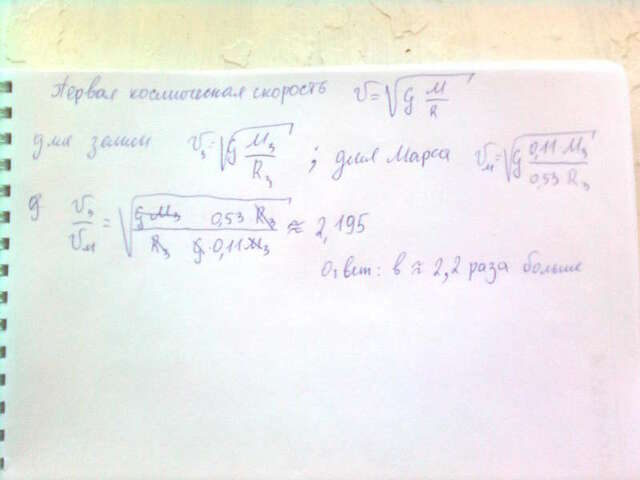 Первая космическая скорость V = √(G M/R)
для земли V₃ = √(G M₃/R₃) ; для Марса Vм = √(G 0,11·M₃/0,53 R₃)
V₃/Vм = √(G M₃ 0,53 R₃/R₃ G·0,11 M₃) ≈ 2,195
Ответ: в ≈ 2,2 раза больше